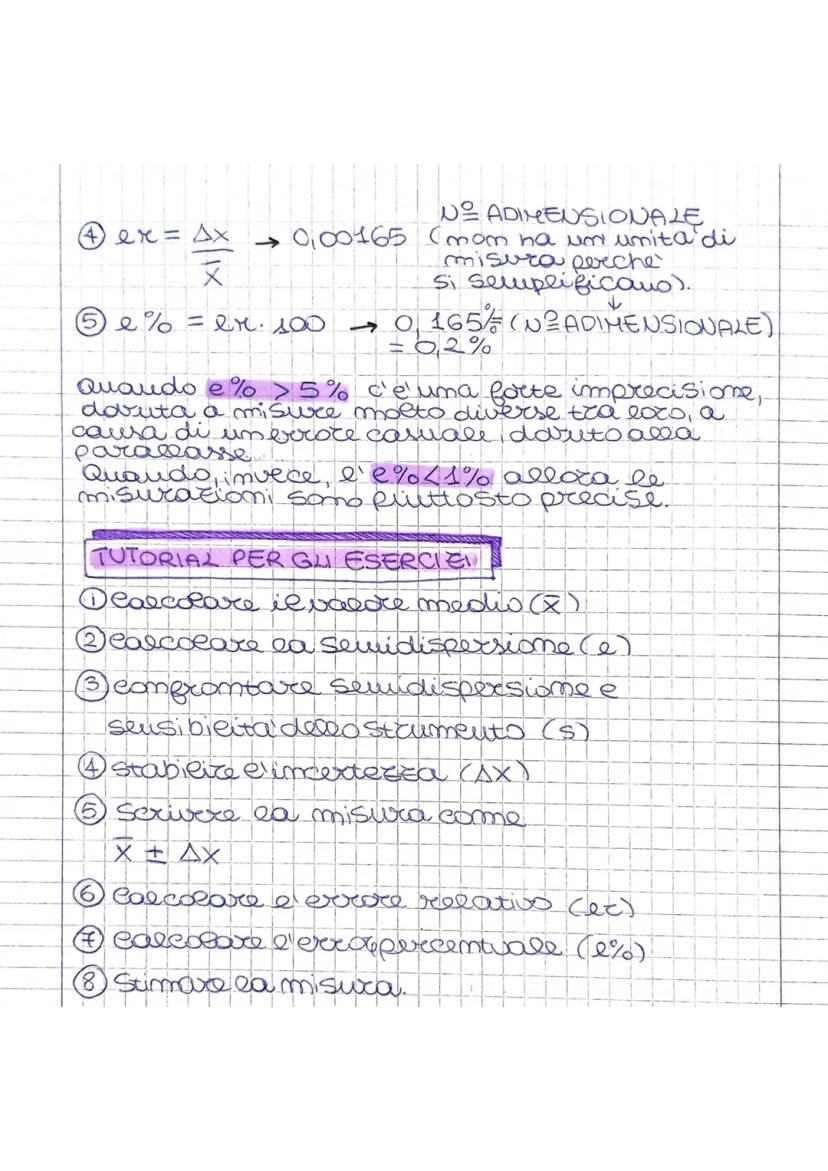 Nº ADIMENSIONALE
④ er = Δx / x̄ → 0,00165 (non ha un' unità di
misura perchè
si semplificano).
↓
⑤ e% = er. 100 → 0,165% = (Nº ADIMENSIONALE)
= 0,2%
Quando e% > 5% c'è una forte imprecisione,
dovuta a misure molto diverse tra loro, a
causa di un errore casuale, dovuto alla
parallasse.
Quando, invece, l'e% < 1% allora le
misurazioni sono piuttosto precise.
TUTORIAL PER GLI ESERCIZI
① Calcolare il valore medio (x̄)
② Calcolare la semidispersione (e)
③ Confrontare semidispersione e
sensibilità dello strumento (s)
④ Stabilire l'incertezza (Δx)
⑤ Scrivere la misura come
x̄ ± Δx
⑥ Calcolare l'errore relativo (er)
⑦ Calcolare l'error percentuale (e%)
⑧ Stimare la misura.